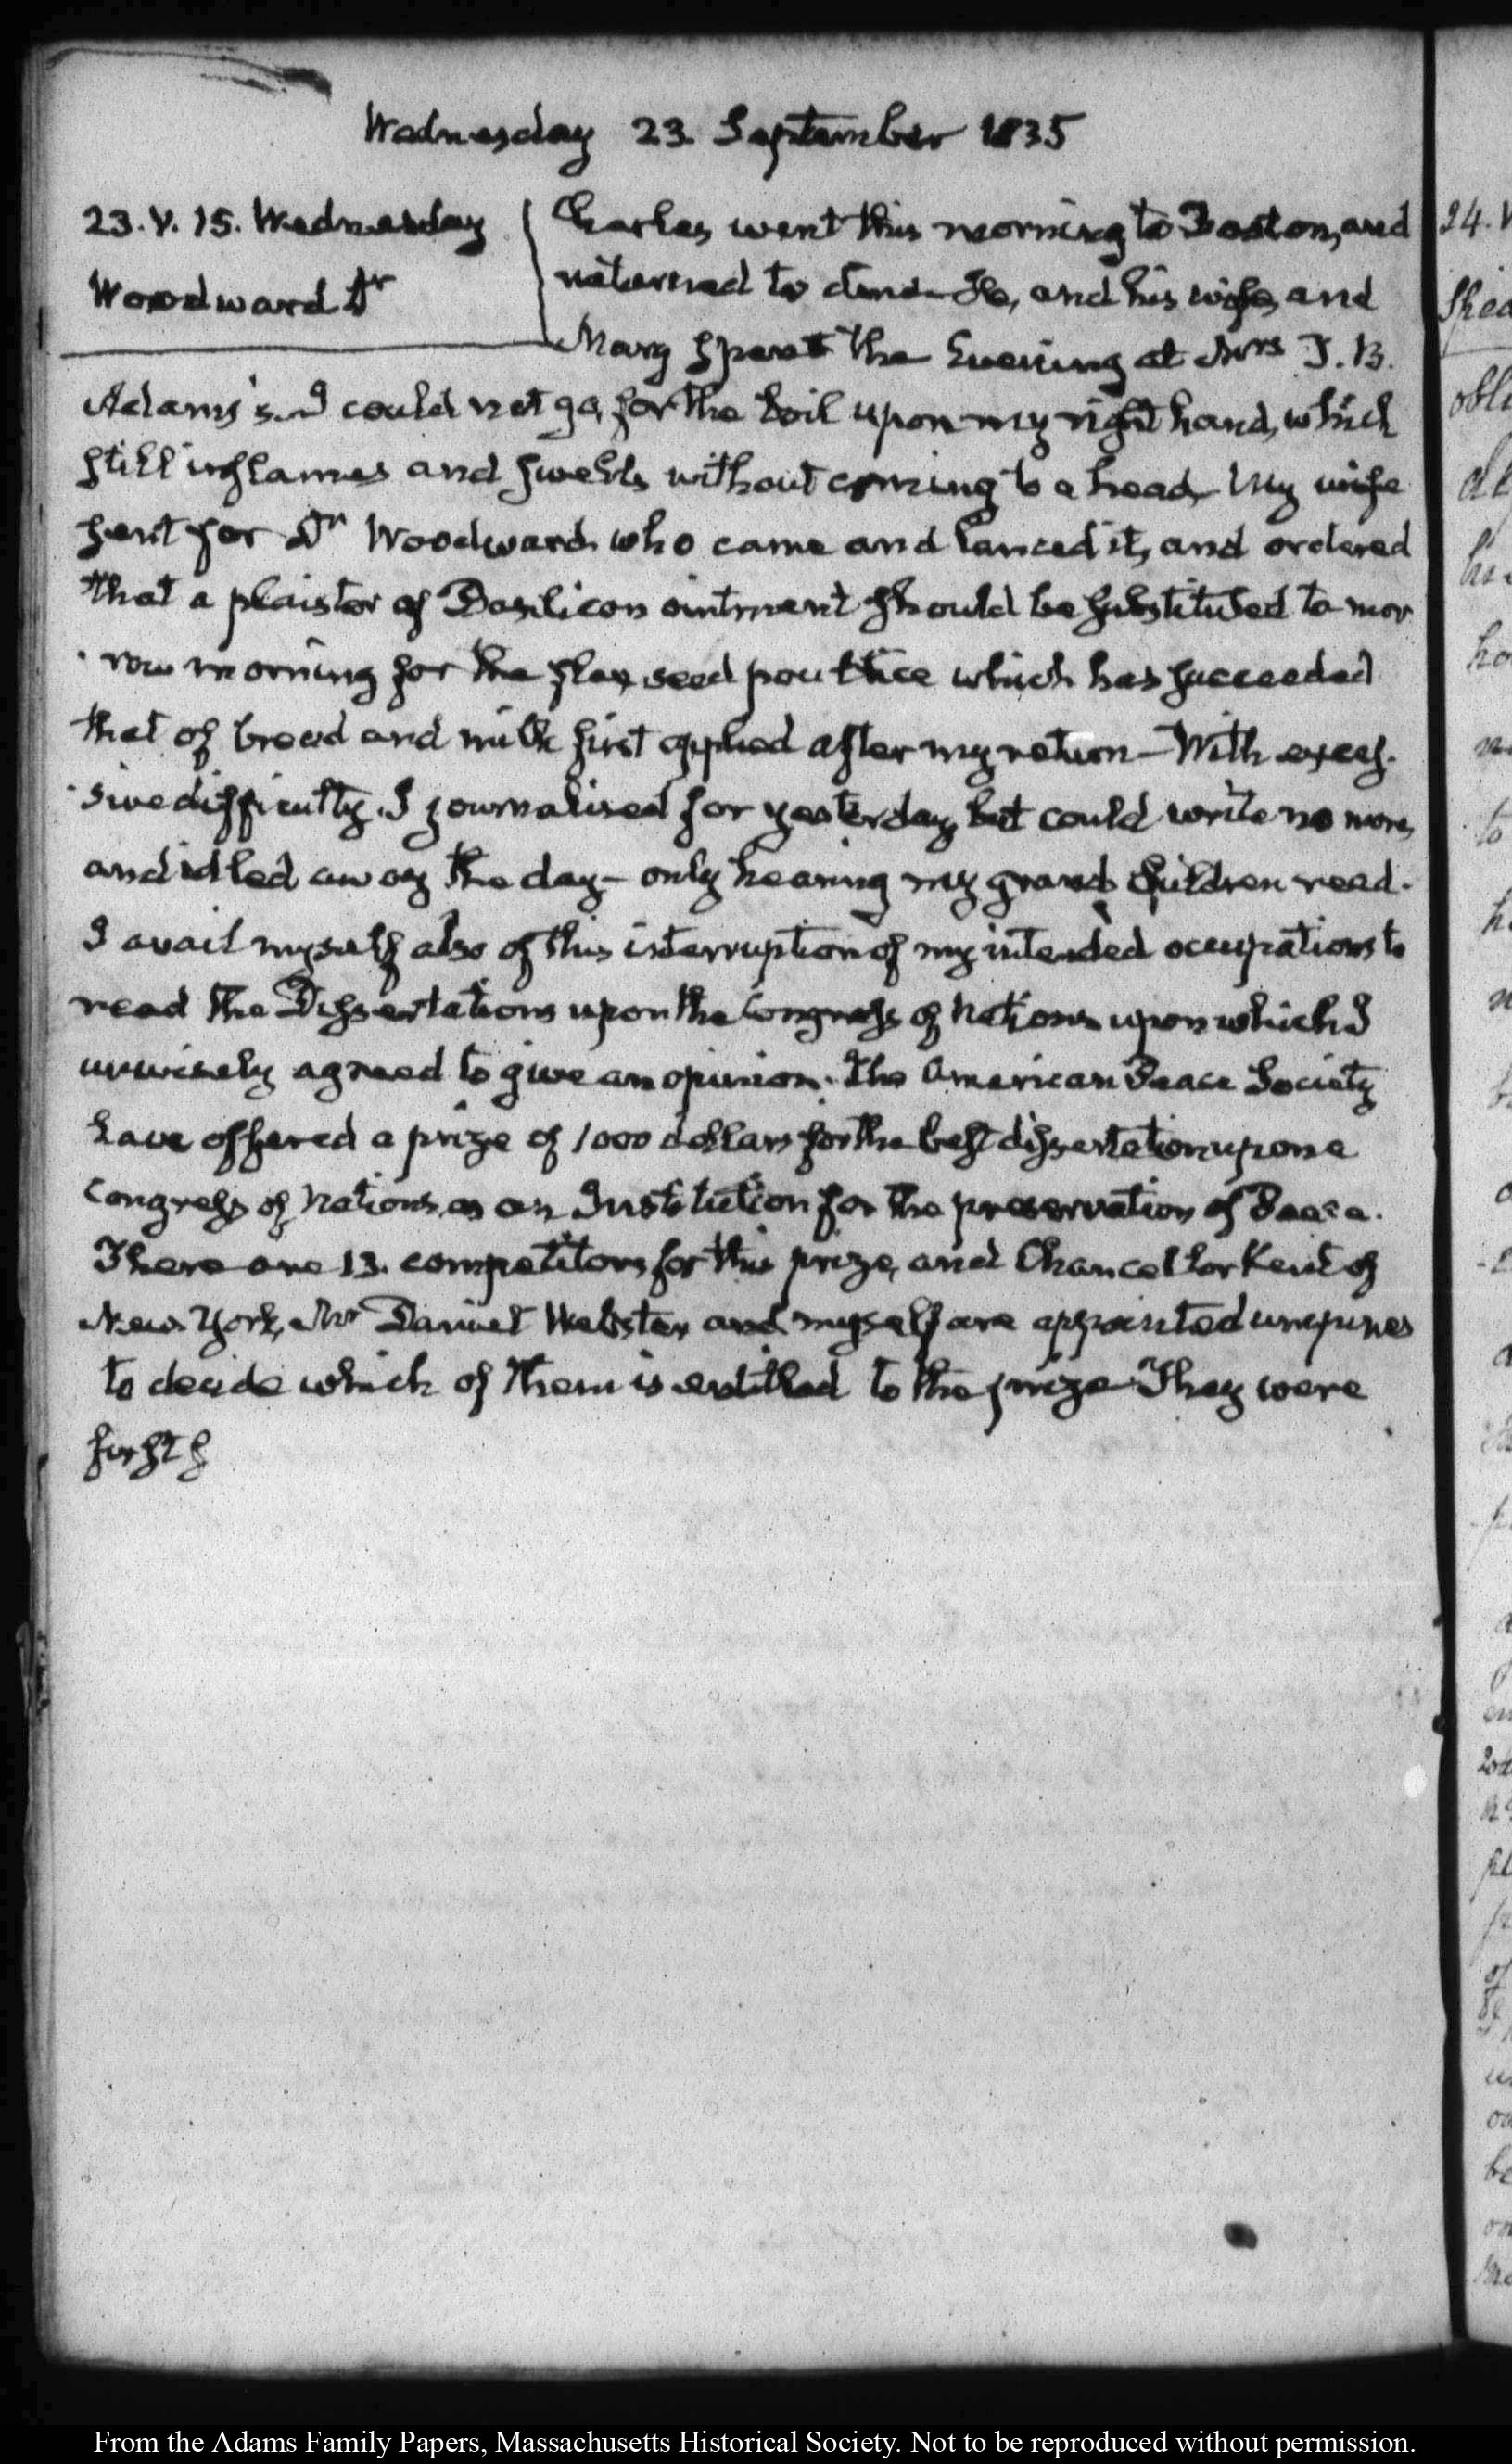 Wednesday 23 September 1835
23. V. 15. Wednesday
Woodward Dr
Charles went this morning to Boston, and
returned to dine. He, and his wife, and
Mary spent the Evening at Mrs T. B.
Adams's. I could not go, for the boil upon my right hand, which
still inflames and swells without coming to a head. My wife
sent for Dr Woodward who came and lanced it, and ordered
that a plaister of Basilicon ointment should be substituted to mor
row morning for the flax seed poultice which has succeeded
that of bread and milk first applied after my return — With exces-
sive difficulty. I journalised for yesterday, but could write no more,
and idled away the day — only hearing my grand children read.
I avail myself also of this interruption of my intended occupations to
read the Dissertations upon the Congress of Nations upon which I
unwisely agreed to give an opinion. The American Peace Society
have offered a prize of 1000 dollars for the best dissertation upon a
Congress of Nations, as an Institution for the preservation of Peace.
There are 13. competitors for this prize, and Chancellor Kent of
New York, Mr Daniel Webster and myself are appointed umpires
to decide which of them is entitled to the prize They were
24. V
obli
ho
to
From the Adams Family Papers, Massachusetts Historical Society. Not to be reproduced without permission.